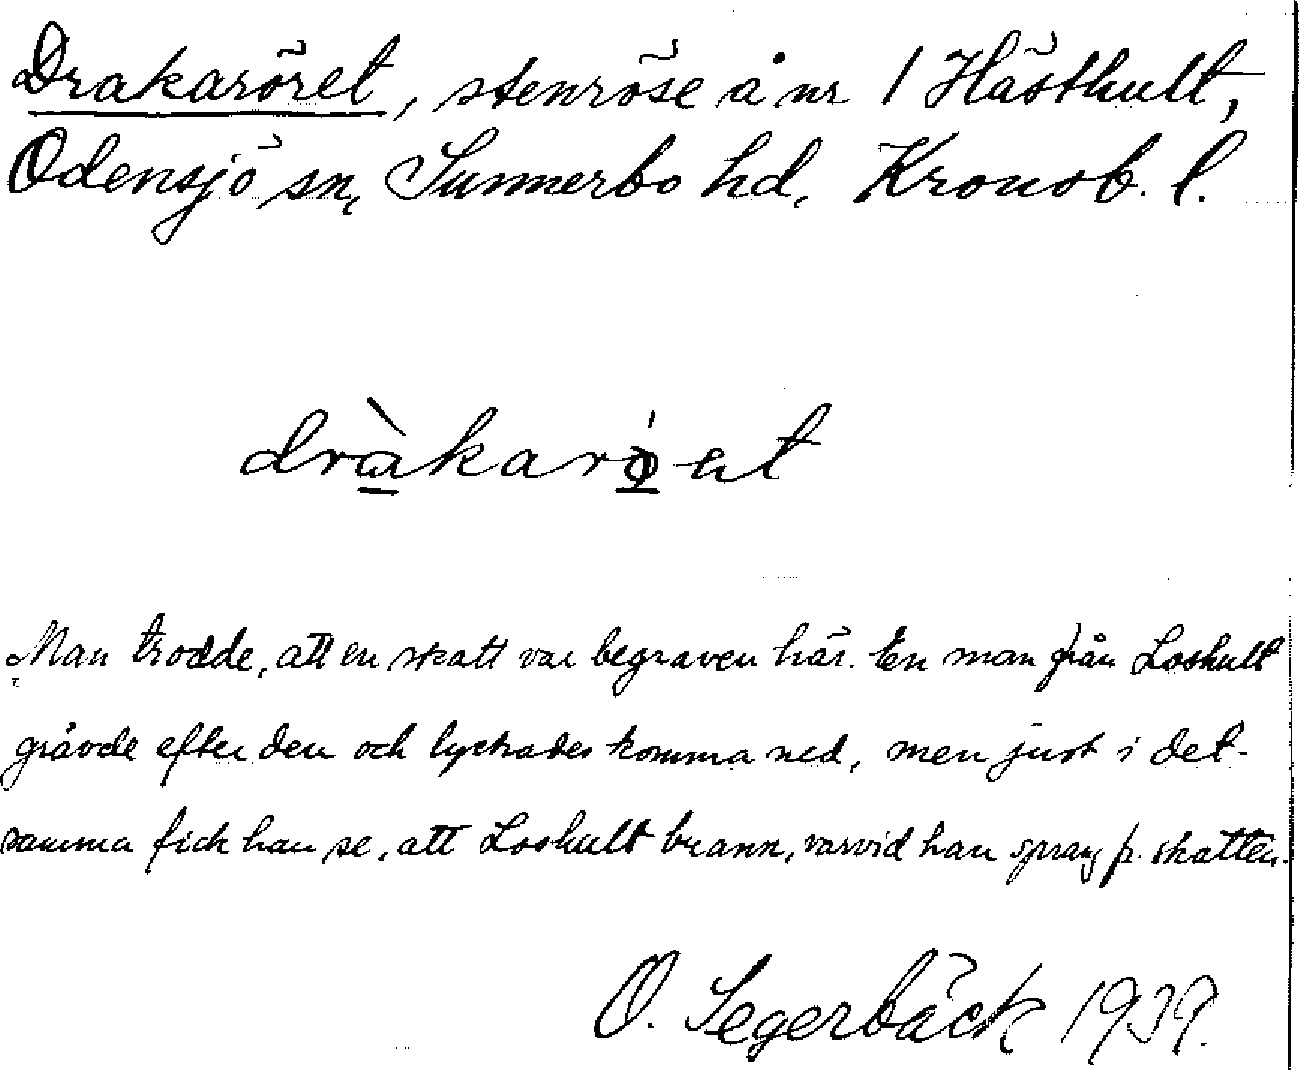 Drakaröret, stenröse å nr 1 Hästhult,
Odensjö sn, Sunnerbo hd, Kronob. l.
dràkarǿ et
Man trodde, att en skatt var begraven här. En man från Loshult
grävde efter den och lyckades komma ned, men just i det-
samma fick han se, att Loshult brann, varvid han sprang fr. skatten.
O. Segerbäck 1939.